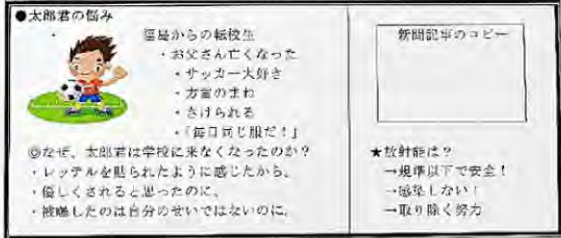 ●太郎君の悩み
福島からの転校生
・お父さん亡くなった
・サッカー大好き
・方言のまね
・さけられる
・「毎日同じ服だ!」
◎なぜ、太郎君は学校に来なくなったのか?
・レッテルを貼られたように感じたから。
・優しくされると思ったのに。
・被曝したのは自分のせいではないのに。
新聞記事のコピー
★放射能は?
→規準以下で安全!
→感染しない!
→取り除く努力